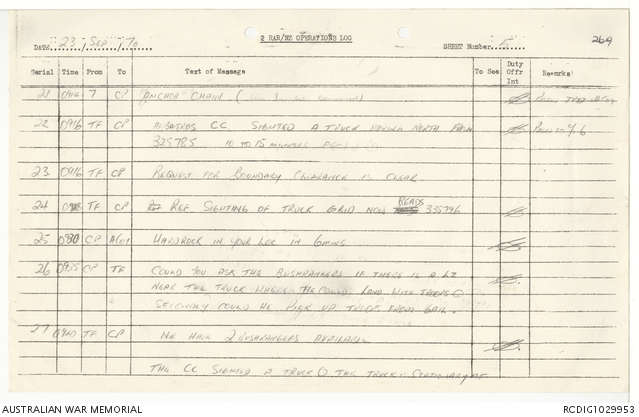 2 RAR/NZ OPERATIONS LOG
269
DATE: 23 / Sep / 70
SHEET Number: 5
Serial Time From To Text of Message To See Duty Offr Int Remarks
21 7 CP "ANCHOR" CHANN (
22 0916 TF CP ALBATROSS CC SIGHTED A TRUCK MOVING NORTH FROM
335785 10 TO 15 MINUTES AGO
23 0916 TF CP REQUEST FOR BOUNDARY CLEARANCE IS CLEAR
24 TF CP REF SIGHTING OF TRUCK GRID NOW READS 335796
25 0930 CP HARDROCK IN YOUR LOC IN 6 MINS
26 0935 CP TF COULD YOU ASK THE BUSHRANGERS IF THERE IS A LZ
NEAR THE TRUCK WHERE THE COULD LAND WITH TROOPS
SECONDLY COULD HE PICK UP TROOPS FROM
27 0940 TF CP WE HAVE 2 BUSHRANGERS AVAILABLE
THE CC SIGHTED A TRUCK THE TRUCK STATIONARY AT
AUSTRALIAN WAR MEMORIAL
RCDIG1029953